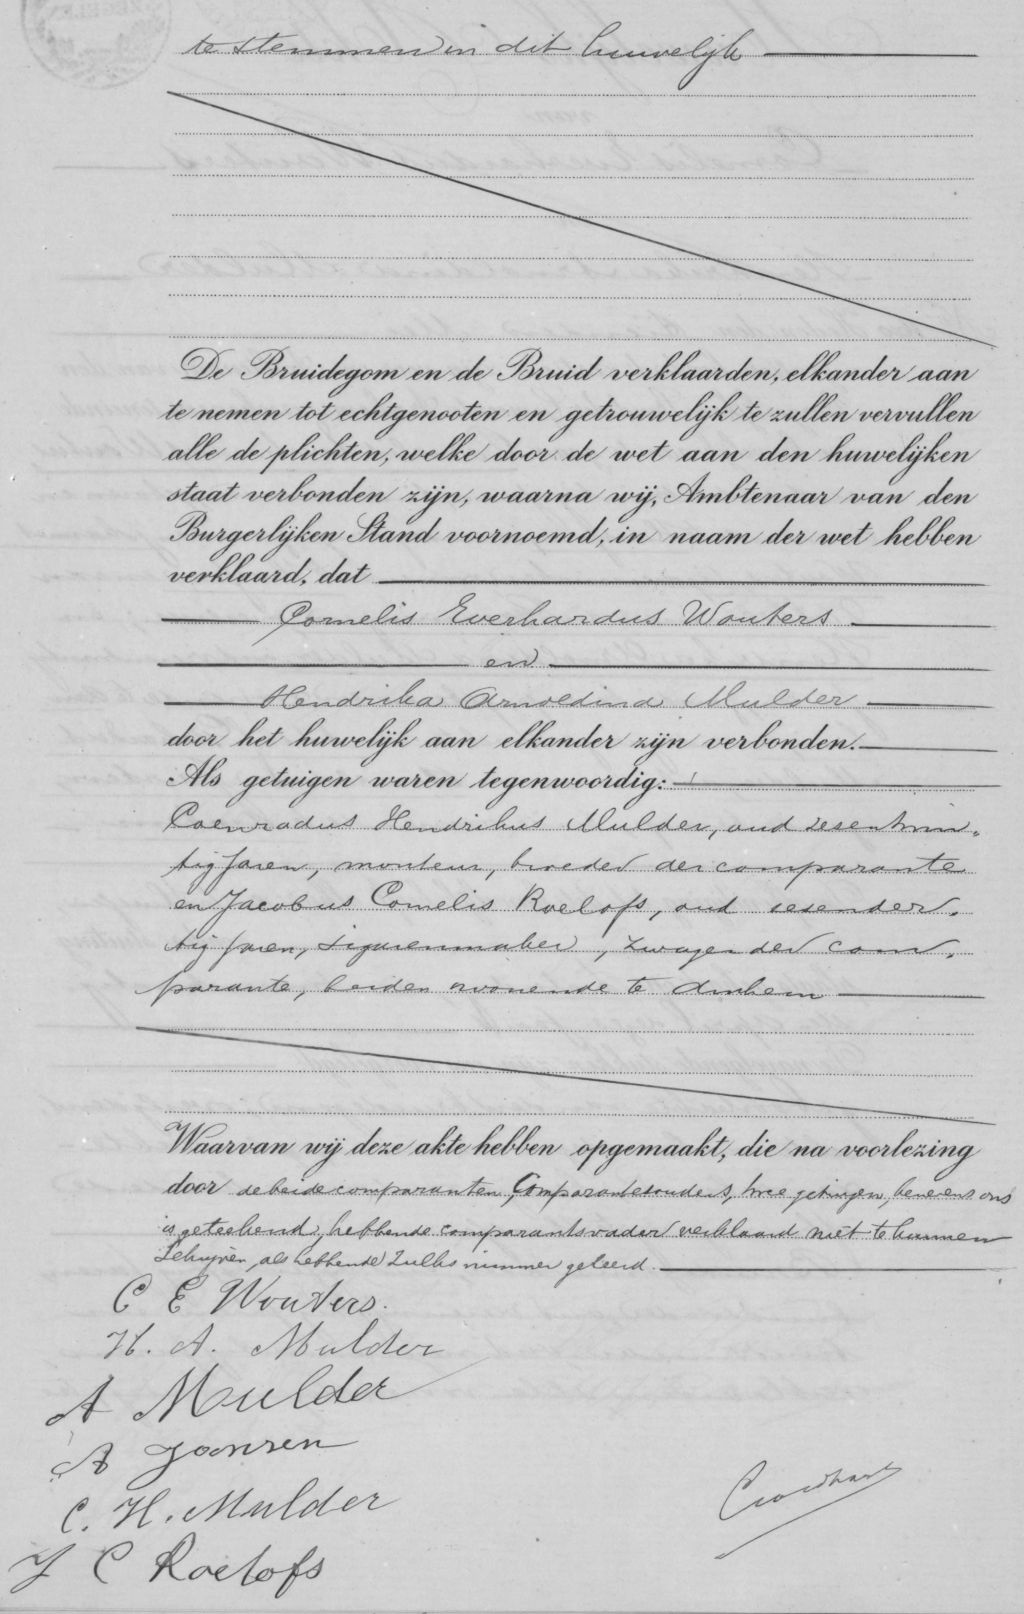 te stemmen in dit huwelijk
De Bruidegom en de Bruid verklaarden, elkander aan
te nemen tot echtgenooten en getrouwelijk te zullen vervullen
alle de plichten, welke door de wet aan den huwelijken
staat verbonden zijn, waarna wij, Ambtenaar van den
Burgerlijken Stand voornoemd, in naam der wet hebben
verklaard, dat
Cornelis Everhardus Wouters
en
Hendrika Arnoldina Mulder
door het huwelijk aan elkander zijn verbonden.
Als getuigen waren tegenwoordig:
Coenradus Hendrikus Mulder, oud zesentwin-
tig jaren, monteur, broeder der comparante
en Jacobus Cornelis Roelofs, oud zesender-
tig jaren, sigarenmaker, zwager der com-
parante, beiden wonende te Arnhem
Waarvan wij deze akte hebben opgemaakt, die na voorlezing
door de beide comparanten, Comparantesouders, twee getuigen, benevens ons
is geteekend, hebbende comparants vader verklaard niet te kunnen
Schrijven, als hebbende zulks nimmer geleerd.
C E Wouters.
H. A. Mulder
A Mulder
A Jansen
C. H. Mulder
J C Roelofs